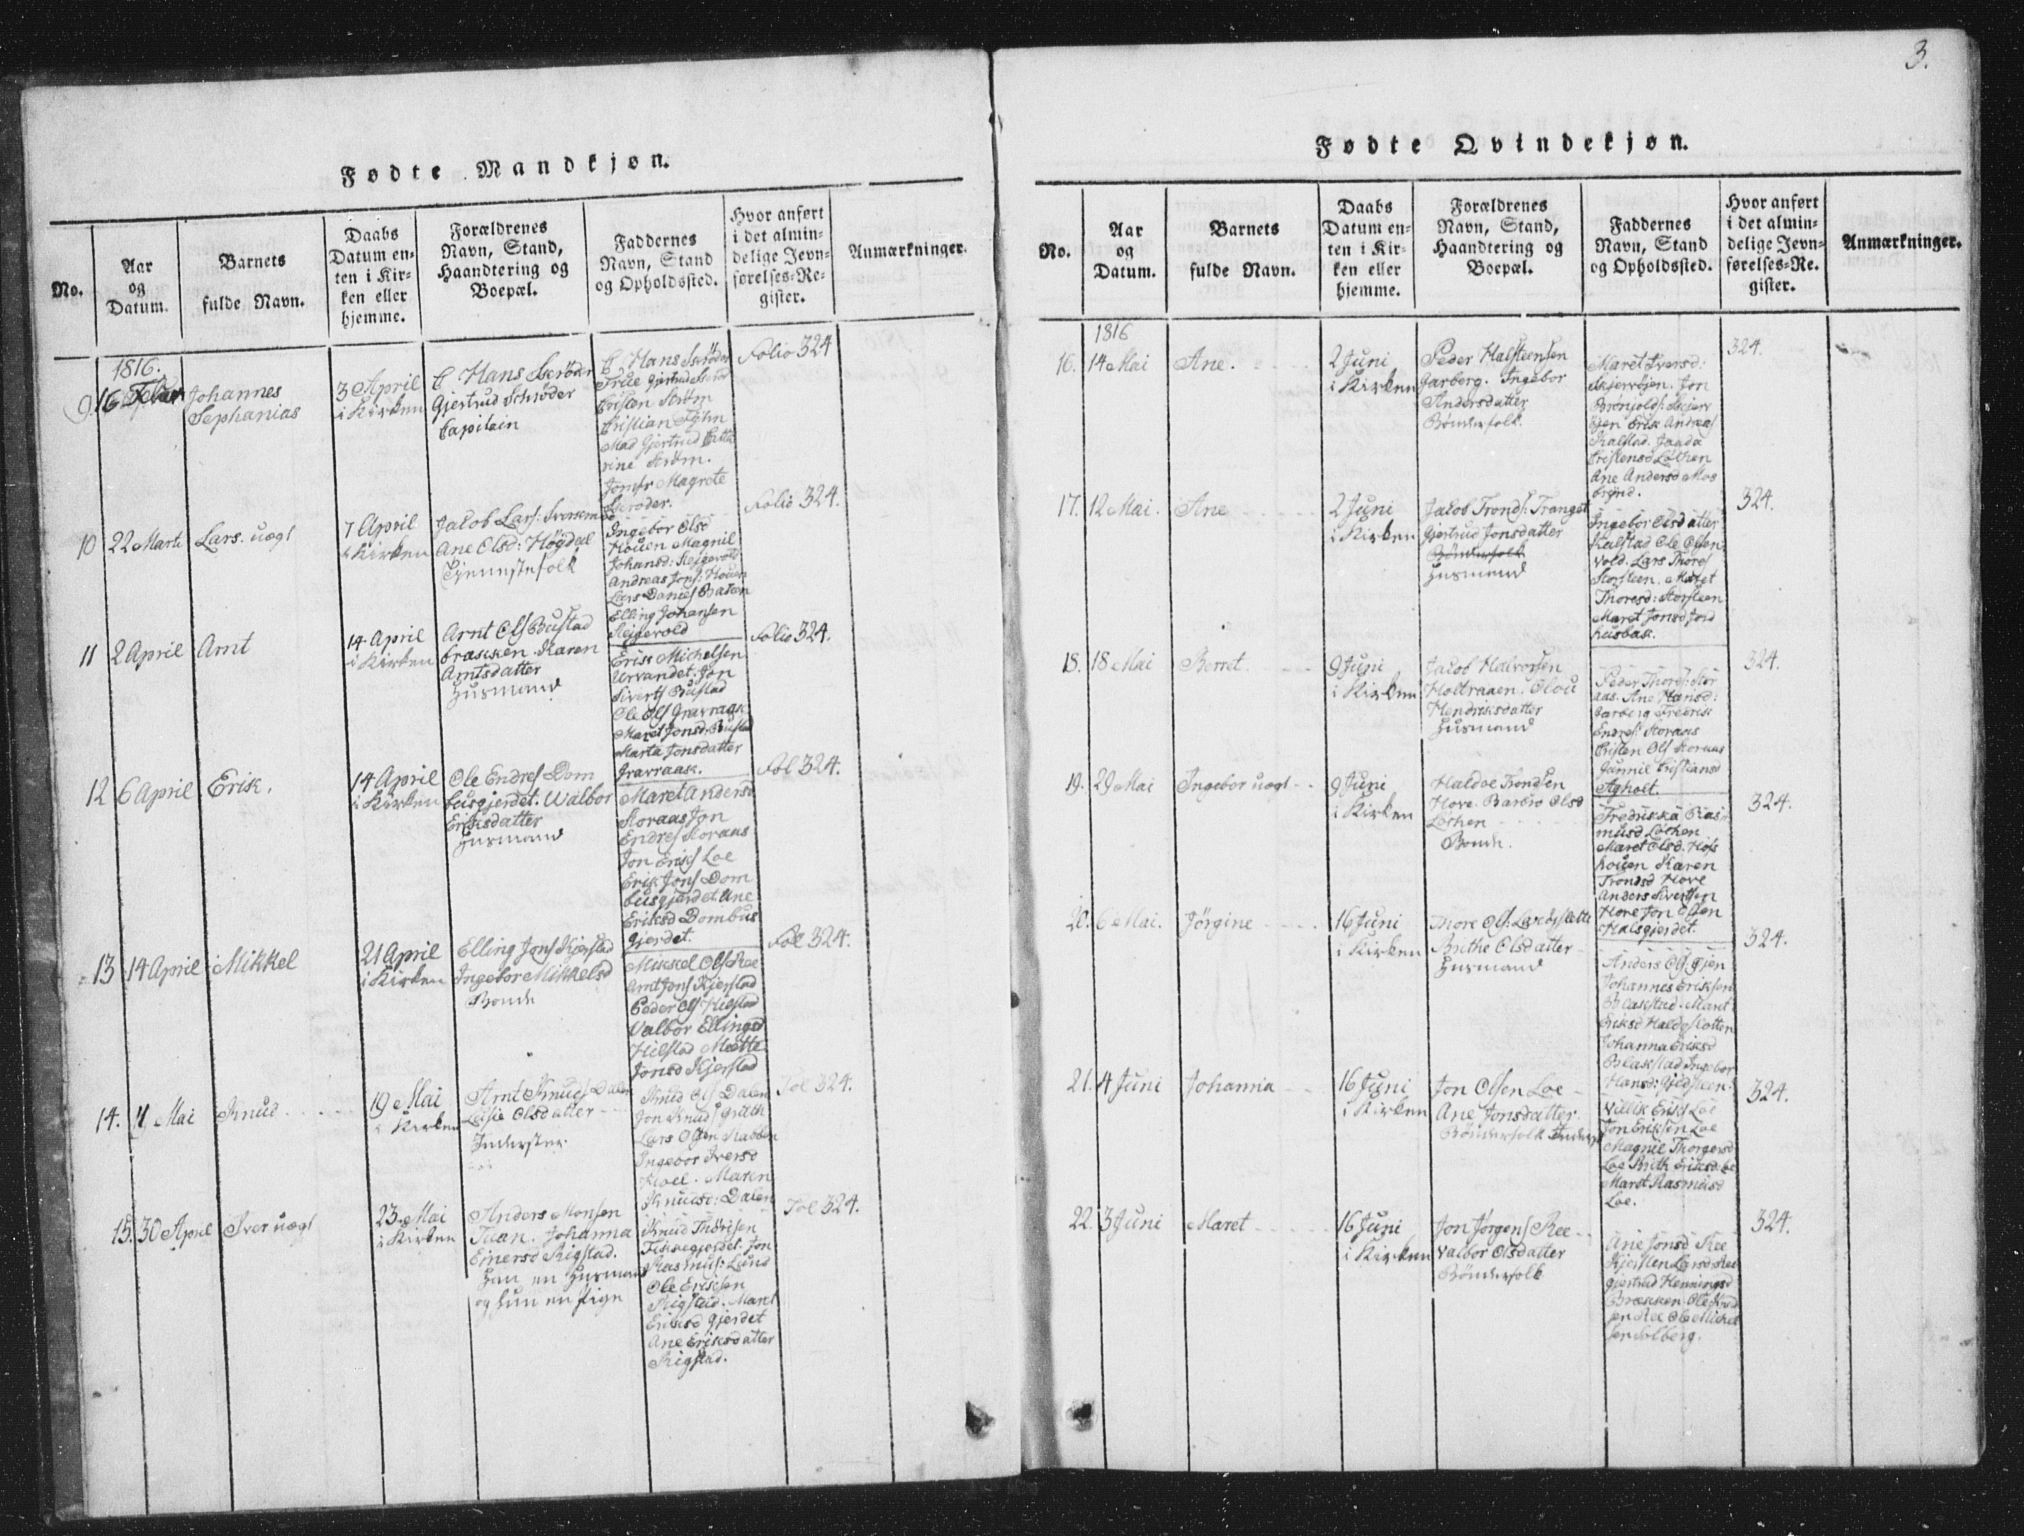 Fødte Mandkjøn.
No.
Aar
og
Datum.
Barnets
fulde Navn.
Daabs
Datum en-
ten i Kir-
ken eller
hjemme.
Forældrenes
Navn, Stand,
Haandtering og
Boepæl.
Faddernes
Navn, Stand
og Opholdssted.
Hvor anført
i det almin-
delige Jevn-
førelses-Re-
gister.
Anmærkninger.
1816.
9
16 Febr
Johannes
Sephanias
3 April
i Kirken
C Hans Skrøder
Gjertrud Schrøder
Capitain
C Hans Skrøder
Frue Gjertrud
Cristen Strøm
Cristian
Mad Gjertrud Catte
rine Strøm.
Jomfr Magrete
Skrøder.
Folio 324
10
22 Marts
Lars. uægt
7 April
i Kirken
Jacob Lars:
Ane Olsd: Høgdal
Tjennestefolk
Ingebor Olsd
Houen Magnil
Johansd: Stejgevold
Andreas Jons: Houen
Lars Daniels
Elling Johansen
Stejgevold
Folio 324.
11
2 April
Arnt
14 April
i Kirken
Arnt Ols Bustad
brækken. Karen
Arntsdatter
Husmand
Erik Michelsen
Urvandet. Jon
Siverts Bustad
Ole Ols Gravraak
Maret Jonsd: Bustad
Marta Jonsdatter
Gravraak.
Folio 324.
12
6 April
Erik.
14 April
i Kirken
Ole Endres Dom
busgjerdet. Walbor
Eriksdatter
Husmand
Maret Andersd
Storaas Jon
Endres Storaas
Jon Eriks Loe
Erik Jons Dom
busgjerdet. Ane
Eriksd Dombus
gjerdet.
Fol 324.
13
14 April
Mikkel
21 April
i Kirken
Elling Jons Kjerstad
Ingebor Mikkelsd
Bonde
Mikkel Ols Ree
Arnt Jons Kjerstad
Peder Ols Hilstad
Valbor Ellingsd
Hilstad Mætte
Jonsd Kjerstad
Fol 324.
14.
11 Mai
Knud
19 Mai
i Kirken
Arnt Knuds Dalen
Olsdatter
Inderster.
Knud Ols Dalen
Jon Knuds
Lars Olsen
Ingebor Iversd
Hoel. Maren
Knudsd: Dalen
Fol 324.
15.
30 April
Iver uægt
23 Mai
i Kirken
Anders Monsen
Johanna
Einersd Rigstad.
Han en Husmand
og hun en Pige
Knud
Jon
Rasmus: Lund
Ole Eriksen
Rigstad. Maret
Eriksd Gjerdet
Ane Eriksdatter
Rigstad.
Fol 324.
3.
Fødte Qvindekjøn.
No.
Aar
og
Datum.
Barnets
fulde Navn.
Daabs
Datum en-
ten i Kir-
ken eller
hjemme.
Forældrenes
Navn, Stand,
Haandtering og
Boepæl.
Faddernes
Navn, Stand
og Opholdssted.
Hvor anført
i det almin-
delige Jevn-
førelses-Re-
gister.
Anmærkninger.
1816
16.
14 Mai
Ane.
2 Juni
i Kirken
Peder Halsteensen
Garberg. Ingebor
Andersdatter
Bønderfolk.
Maret Iversd:
Skjerrøjen. Jon
Brønjolds: Skjerr
øjen Erik Andreas
Kalstad.
Cristensd Løchen
Ane Andersd Mos
brønd.
324.
17.
12 Mai.
Ane
2 Juni
i Kirken
Jacob Tronds: Tranget
Gjertrud Jonsdatter
Bønderfolk
Husmand
Ingebor Olsdatter
Kalstad Ole Olsen
Vold. Lars Thores
Storsteen. Maret
Thoresd: Storsteen
Maret Jonsd Jord
husbak.
324.
18.
18 Mai
Berret.
9 Juni
i Kirken
Jacob Halvorsen
Holtraaen. Olou
Hendriksdatter
Husmand
Peder Thores: Stor
aas. Ane Hansd:
Garberg Fredrik
Endres: Storaas
Cristen Ols Storaas
Gunnil Cristiansd
Agholt.
324.
19.
29 Mai
Ingebor uægt
9 Juni
i Kirken
Haldoe Trondsen
Hove. Barbro Olsd
Løchen
Bonde.
Fredrikka Ras
musd Løchen
Maret Olsd. Hofs
houen Karen
Trondsd Hove
Anders Sivertsen
Hove Jon Olsen
Halsgjerdet.
324.
20.
6 Mai.
Jørgine
16 Juni
i Kirken
Thore Ols:
Brithe Olsdatter
Husmand
Anders Ols Gjen
Johannes Eriksen
Blakstad. Maret
Eriksd Haldoslotten
Johanna Eriksd
Blakstad Ingebor
Hansd:
324.
21.
4 Juni
Johanna
16 Juni
i Kirken
Jon Olsen Loe
Ane Jonsdatter.
Bønderfolk Inderst
Villik Eriks Loe
Jon Eriksen Loe
Magnil Thorgersd
Loe Brith Eriksd: Loe
Maret Rasmusd
Loe.
324.
22.
3 Juni
Maret
16 Juni
i Kirken
Jon Jørgens Ree
Valbor Olsdatter
Bønderfolk
Ane Jonsd Ree
Kjersten Larsd Ree
Gjertrud Henningsd
Brækken. Ole Knud
sen Ree Ole Mickel
sen Solberg.
324.